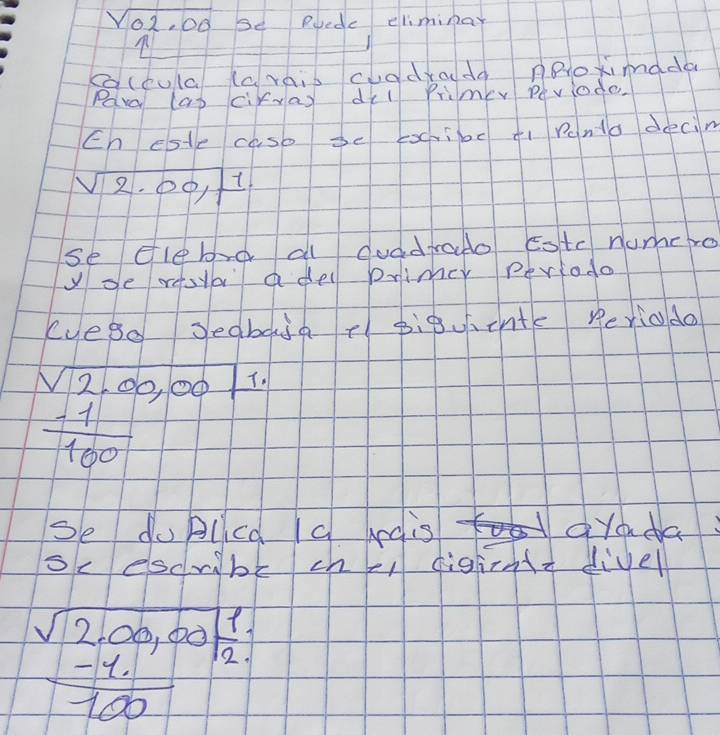 √02.00 se Puede eliminar
calcula la rais cuadrada Aproximada
Para las cifras del Primer Periodo.
En este caso se escribe el Punto decim
√2.00, 1
se Elebra al cuadrado Este numero
y se resta a del Primer Periodo
Luego se abaja el siguiente Periodo
√2.00,00 1.
-1
100
se duplica la rais ayada
se escribe en el sigiente livel
√2.00,00 1.
-1. 2.
100